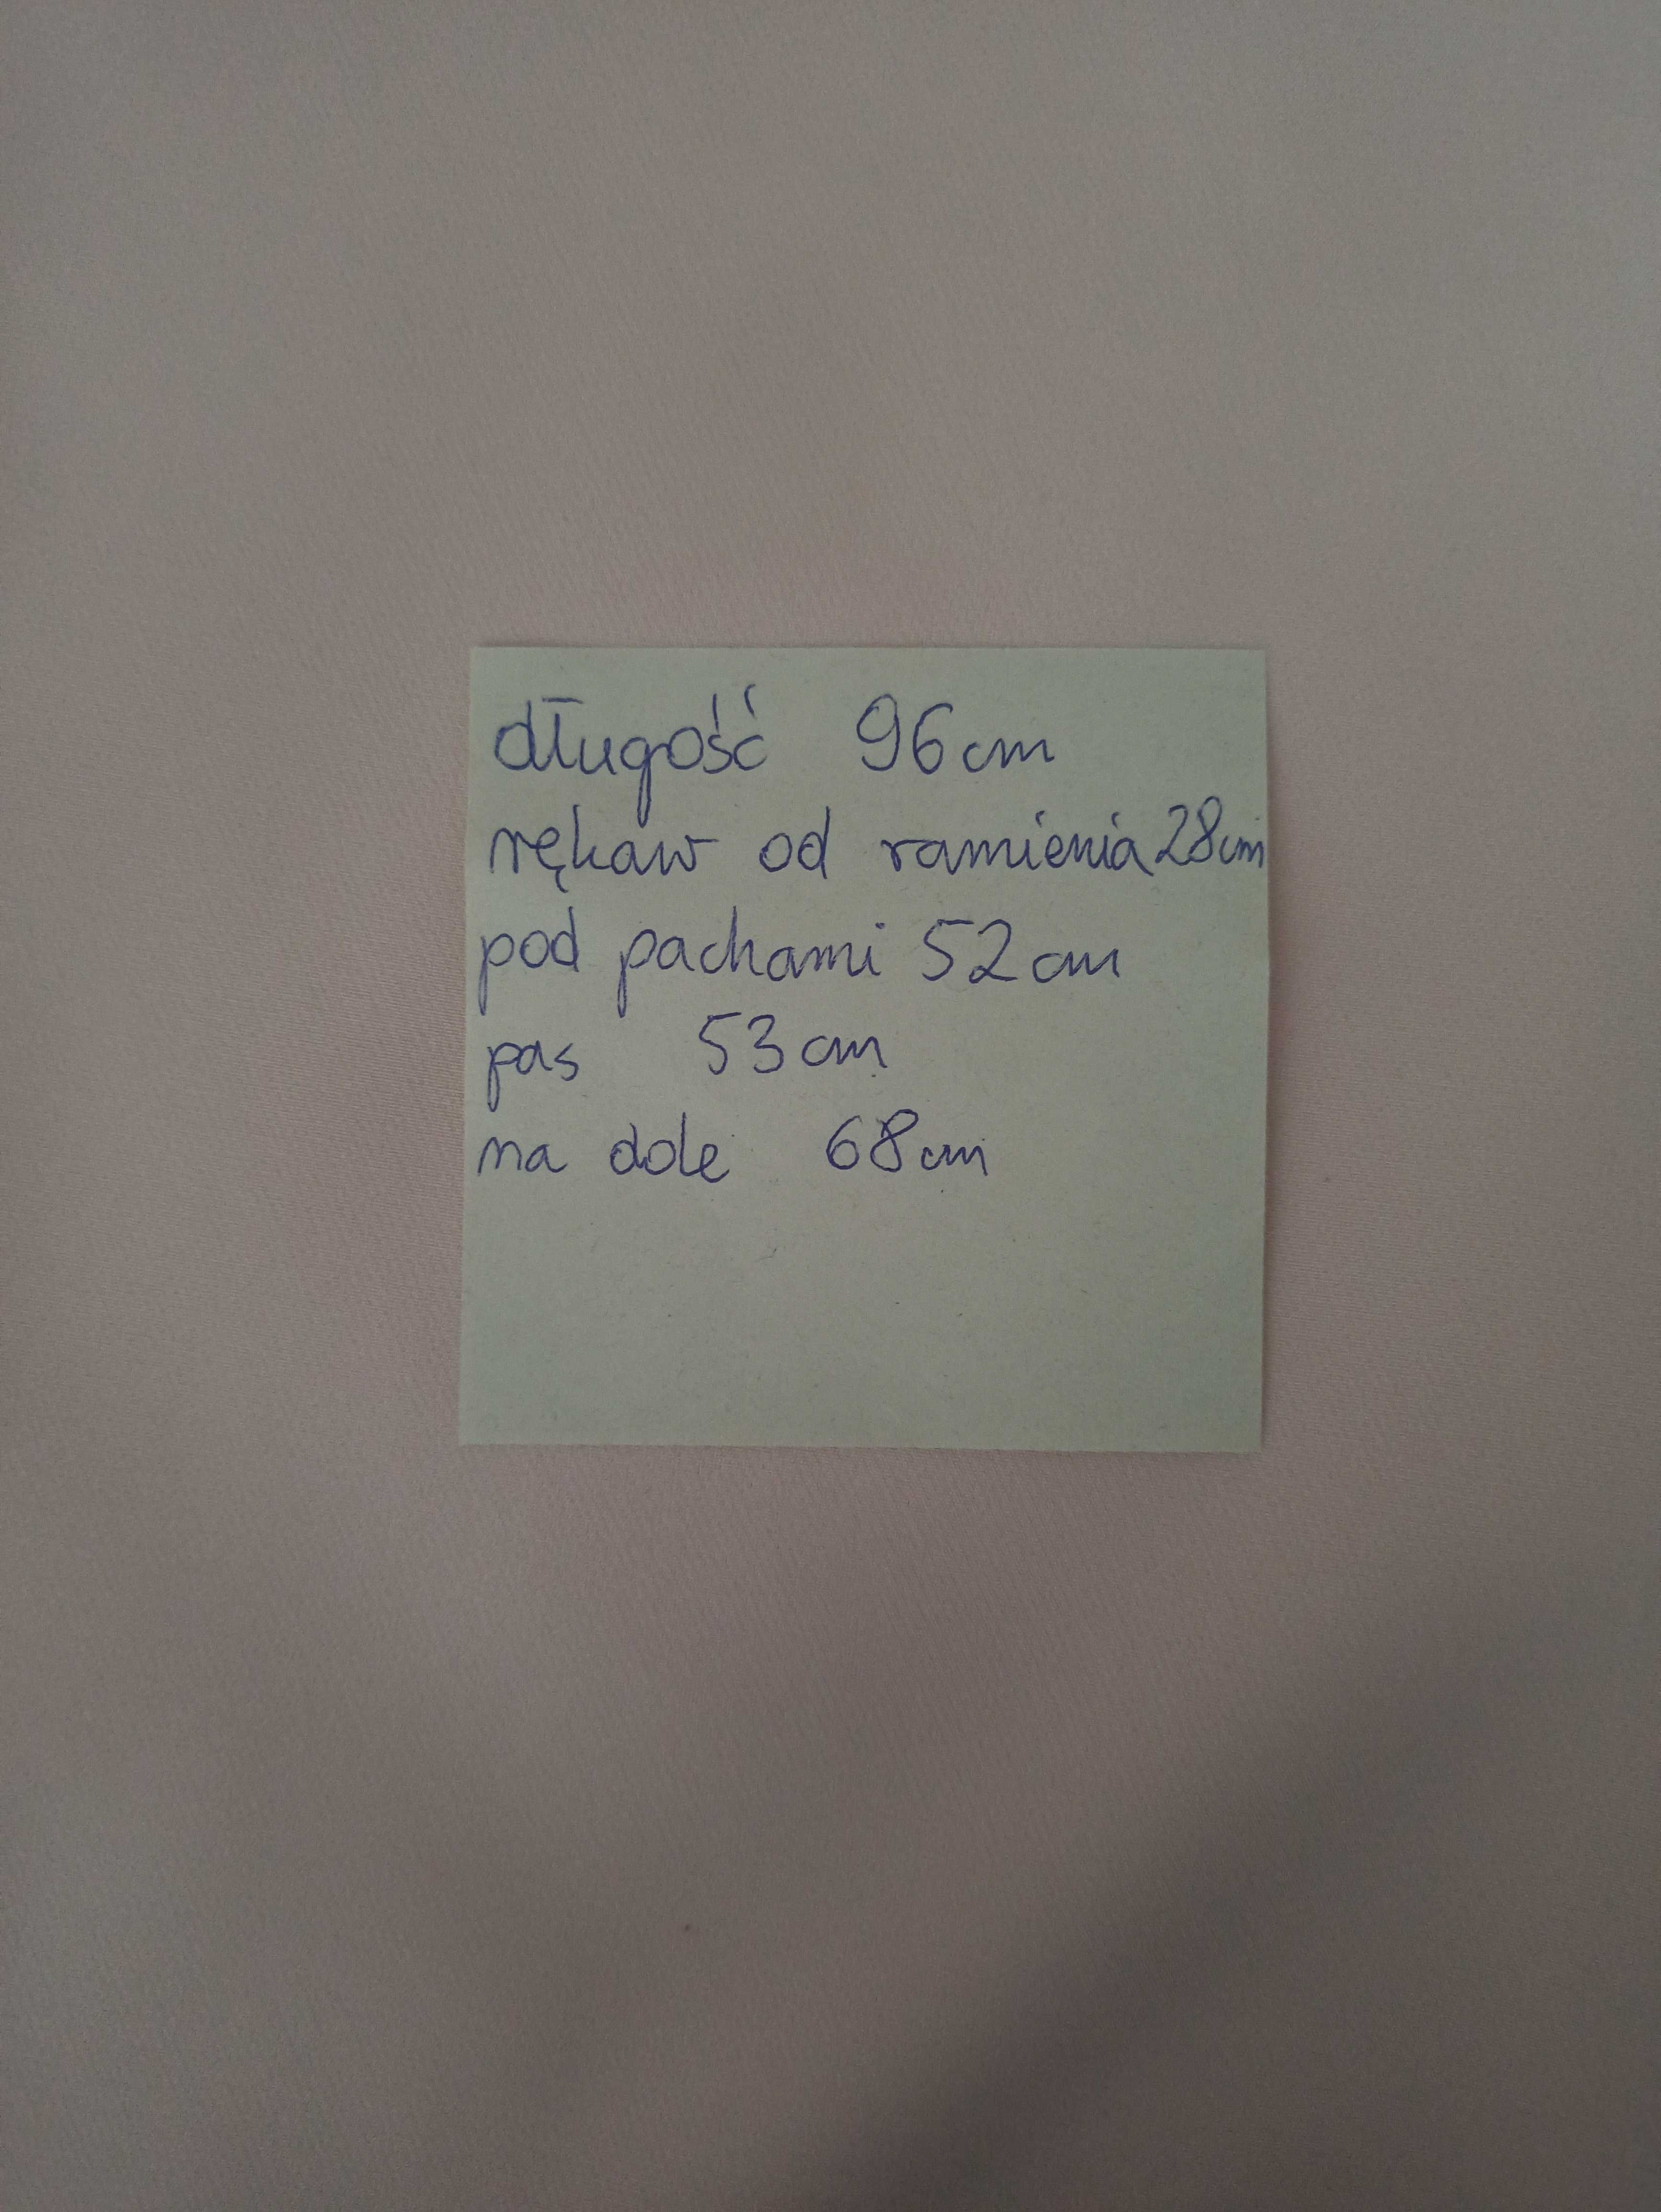 długość 96cm
rękaw od ramienia 28cm
pod pachami 52cm
pas 53cm
na dole 68cm